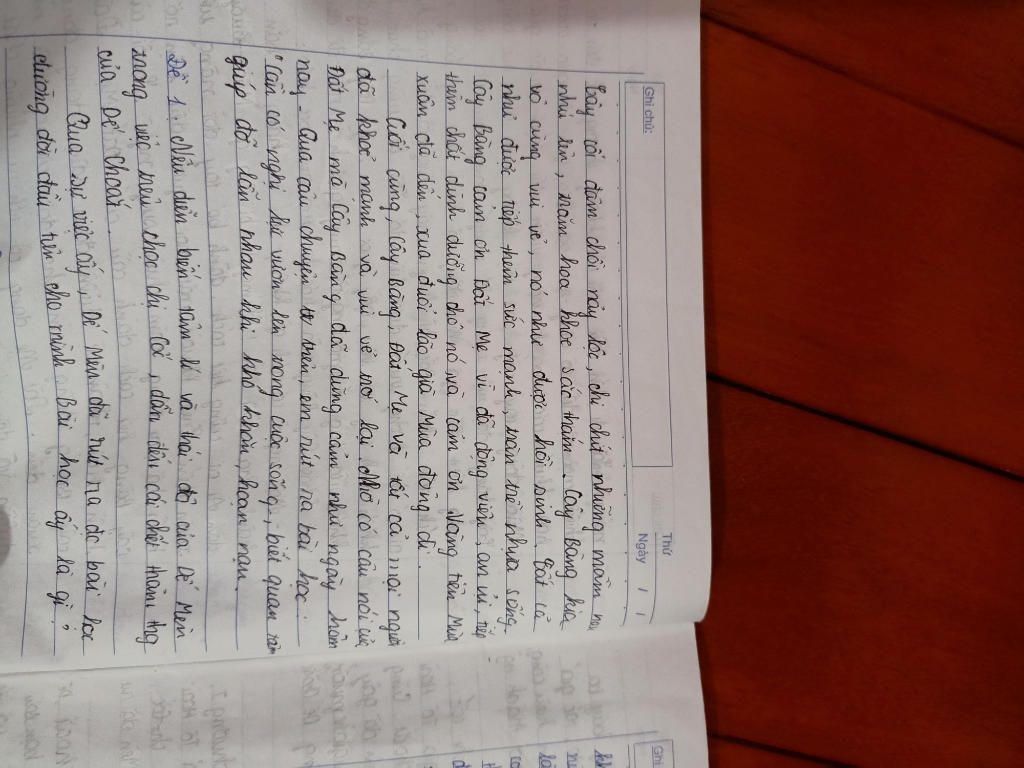 Ghi chú:
Thứ
Ngày / /
bây rồi đâm chồi nảy lộc, chi chút những mầm non
nhú lên, trăm hoa khoe sắc thắm. Cây Bàng kia
vô cùng vui vẻ, nó như được hồi sinh. Tất cả
như được tiếp thêm sức mạnh, tràn trề nhựa sống.
Cây Bàng cảm ơn Đất Mẹ vì đã động viên, an ủi, tiếp
thêm chất dinh dưỡng cho nó và cảm ơn Nàng tiên Mùa
xuân đã đến, xua đuổi lão già Mùa đông đi.
Cuối cùng, Cây Bàng, Đất Mẹ và tất cả mọi người
đã khoẻ mạnh và vui vẻ trở lại. Nhờ có câu nói của
Đất Mẹ mà Cây Bàng đã dũng cảm như ngày hôm
nay. Qua câu chuyện trên, em rút ra bài học:
"Cần có nghị lực vươn lên trong cuộc sống, biết quan tâm
giúp đỡ lẫn nhau khi khó khăn, hoạn nạn.
Đề 1: Nêu diễn biến tâm lí và thái độ của Dế Mèn
trong việc trêu chọc chị Cốc, dẫn đến cái chết thảm thg
của Dế Choắt.
Qua sự việc ấy, Dế Mèn đã rút ra đc bài học
đường đời đầu tiên cho mình. Bài học ấy là gì?
Ghi